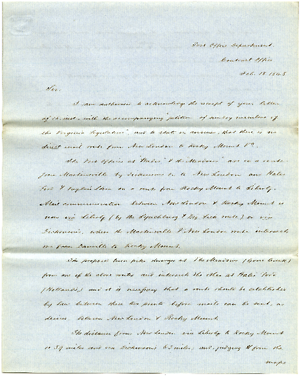 Post Office Department
Contract Office
Feb. 18 1843
Sir,
I am instructed to acknowledge the receipt of your letter
of inst., with the accompanying petition of sundry members of
the Virginia Legislature and to state in answer, that there is no
direct mail route from New London to Rocky Mount
The Post Offices at Hales &
from Martinsville by to New London and Hales
Ford & on a route from Rocky Mount to Liberty.
Mail communication between New London & Rocky Mount is
now via Liberty by the Lynchburg & route, or via
, where the Martinsville & New London route intersects
one from Danville to Rocky Mount.
The proposed
from one of the above routes and intersect the other at Hales Ford
and it is necessary that a route should be established
by law between these two points before mails can be sent, as
desired between New London & Rocky Mount.
The distance from New London via Liberty to Rocky Mount
is 39 miles and via miles and judging from the
maps